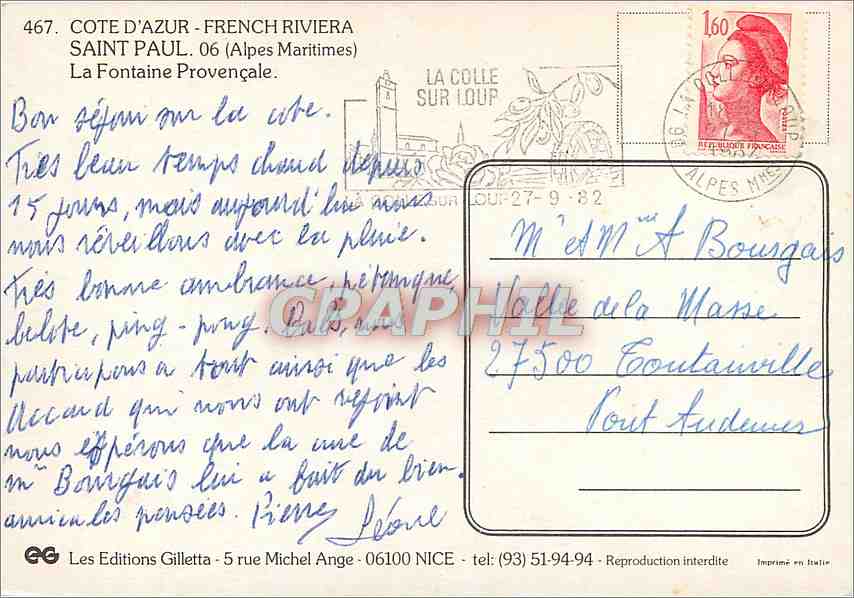 467. COTE D'AZUR - FRENCH RIVIERA
SAINT PAUL. 06 (Alpes Maritimes)
La Fontaine Provençale.
Bon séjour sur la cote.
Très beau temps chaud depuis
15 jours, mais aujourd'hui nous
nous réveillons avec la pluie.
Très bonne ambiance, pétanque,
belote, ping-pong, bals, nous
participons a tout ainsi que les
Accard qui nous ont rejoint
nous espérons que la cure de
Mr Bourgais lui a fait du bien.
amicales pensées. Pierre
Léone
LA COLLE
SUR LOUP
SUR LOUP 27-9-82
1,60
REPUBLIQUE FRANÇAISE
06 LA COLLE SUR LOUP
ALPES MMES
Mr et Mme A Bourgais
Vallée de la Masse
27500 Toutainville
Pont Audemer
CPAPHIL
EG Les Editions Gilletta - 5 rue Michel Ange - 06100 NICE - tel: (93) 51-94-94 - Reproduction interdite
Imprimé en Italie